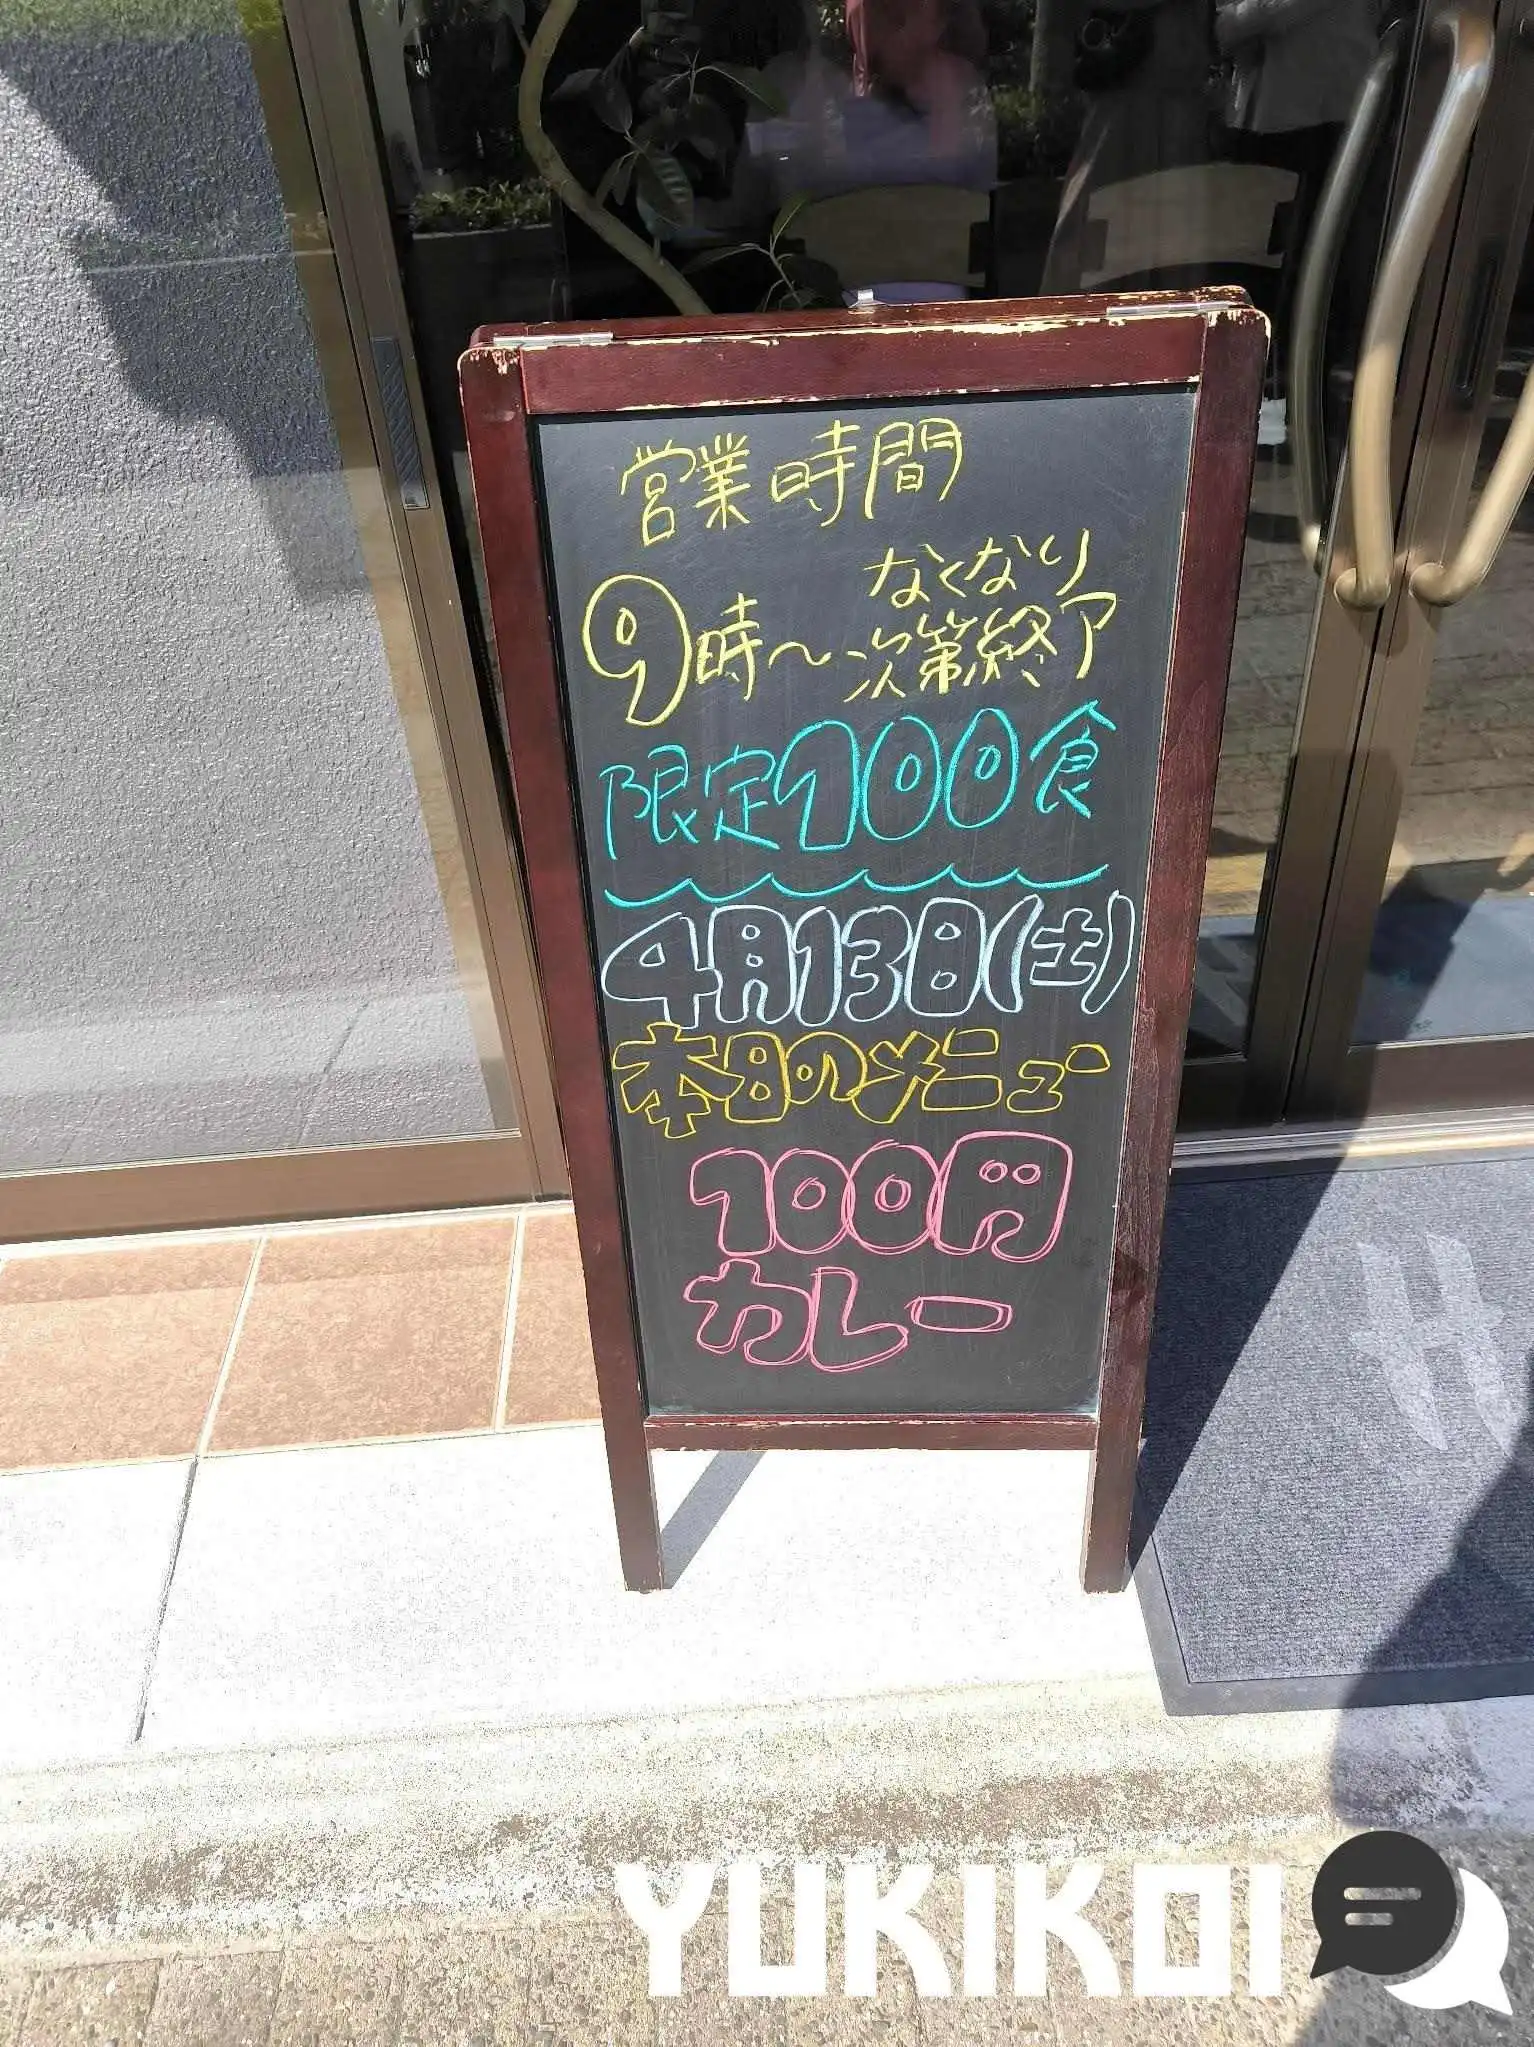 営業時間
9時～なくなり次第終了
限定100食
4月13日(土)
本日のメニュー
100円
カレー
YUKIKOI